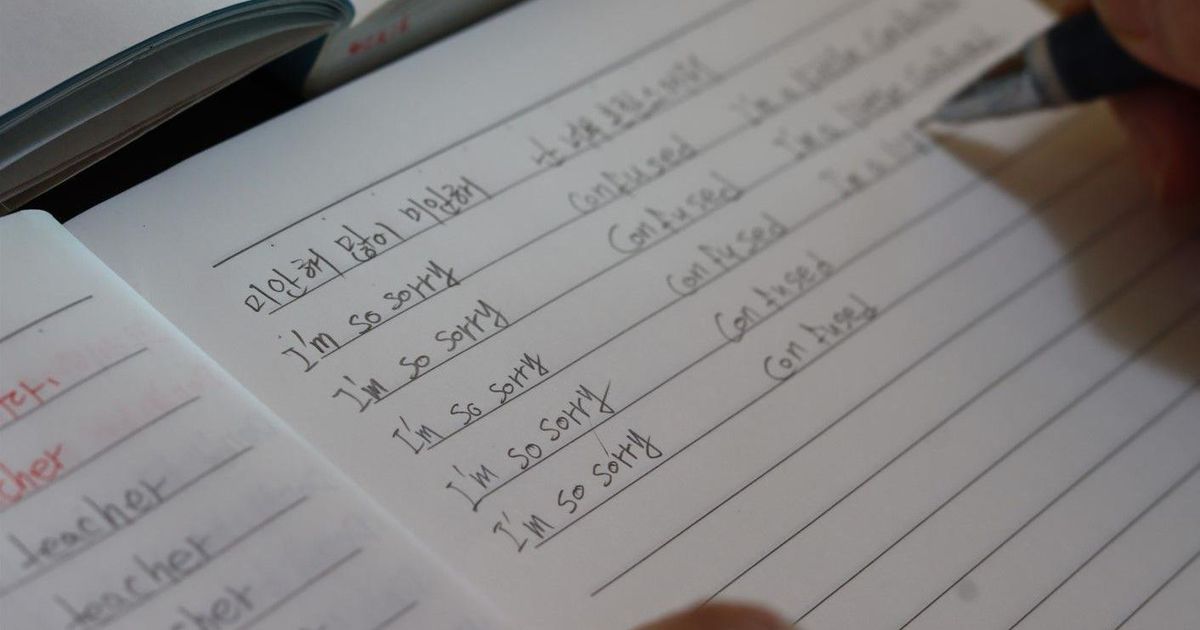 미안해 많이 미안해
I'm so sorry confused I'm a little confused
I'm so sorry confused I'm a little confused
I'm so sorry confused I'm a
I'm so sorry confused
I'm so sorry confused
teacher
teacher